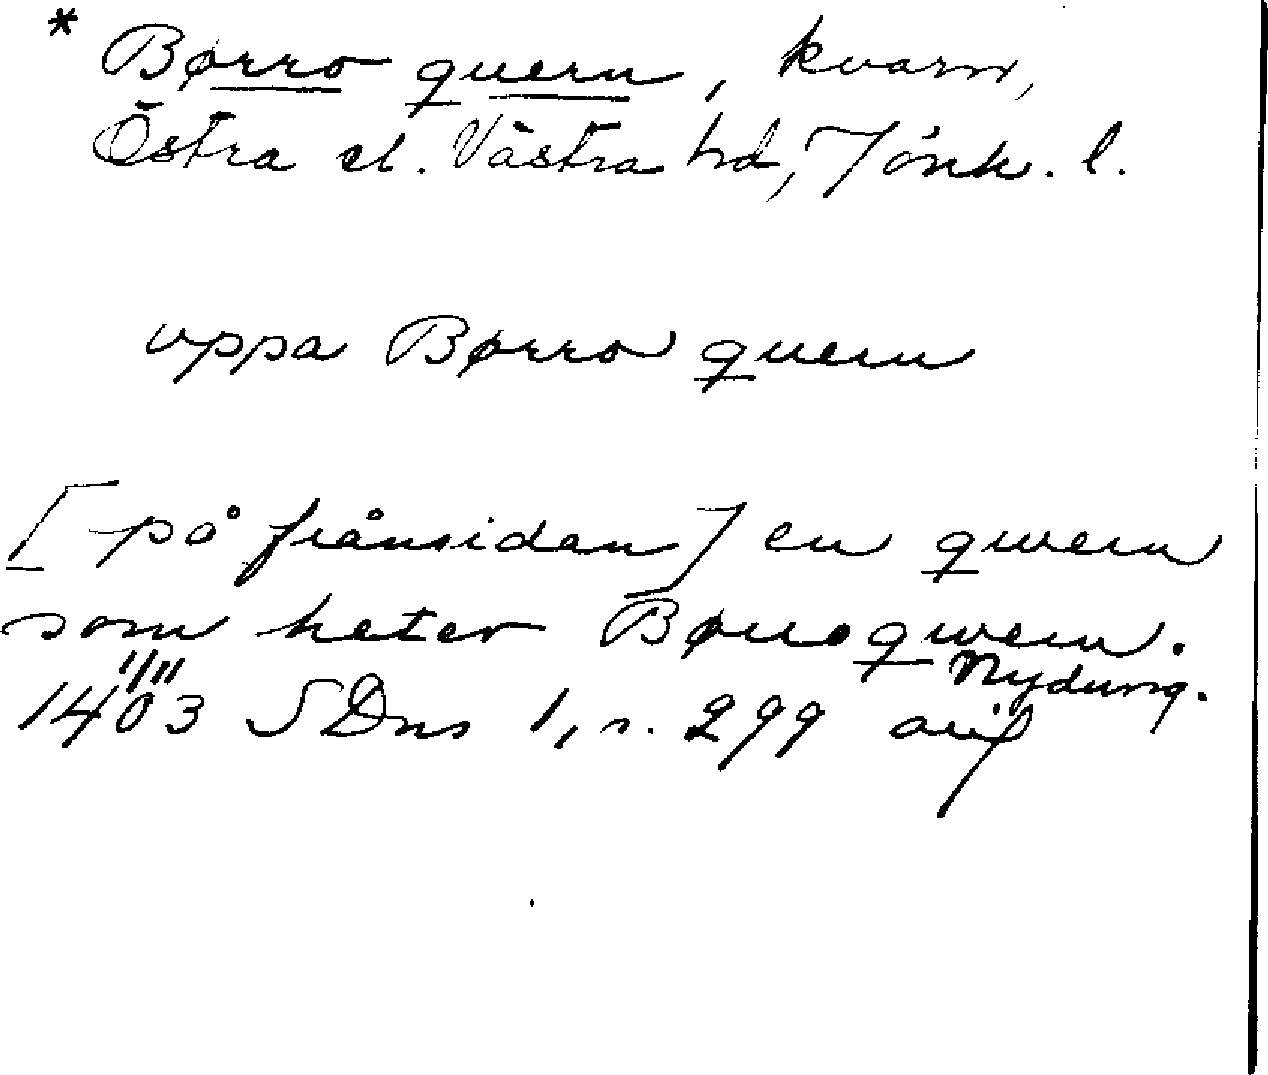 * Børro quern, kvarn,
Östra el. Västra hd, Jönk. l.
uppa Børro quern
[på frånsidan] en qwern
som heter Børroqwern.
Nydung.
1403 11/11 SDns 1, s. 299 avif